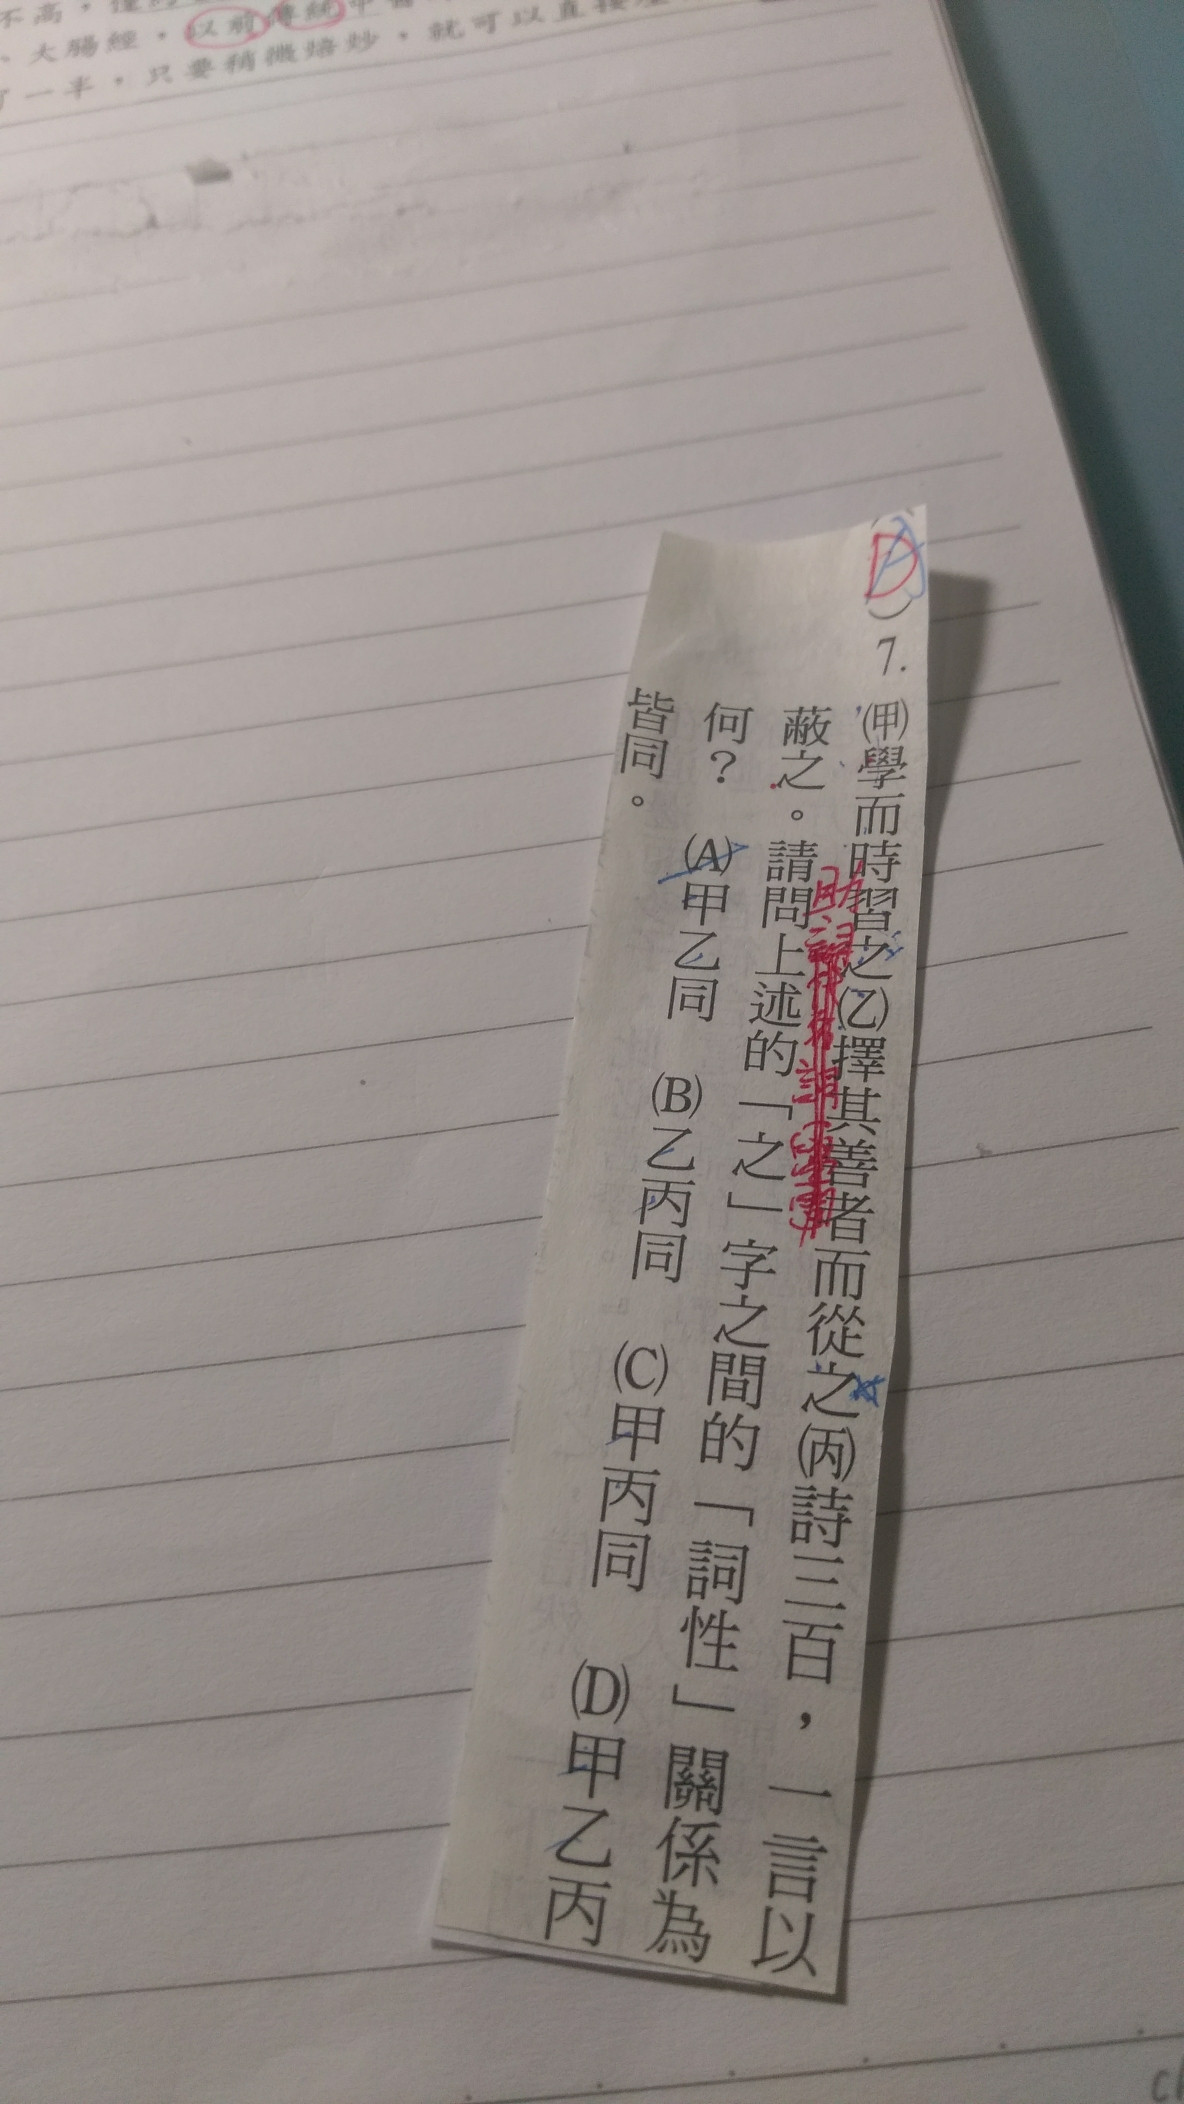 不高，
、大腸經，以前傳統中醫
了一半，只要稍微焙炒，就可以直接
(D) 7. ㈙學而時習之㈚擇其善者而從之㈛詩三百，一言以
蔽之。請問上述的「之」字之間的「詞性」關係為
何？ (A)甲乙同 (B)乙丙同 (C)甲丙同 (D)甲乙丙
皆同。